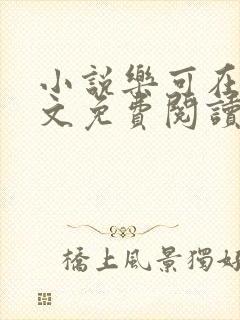 小說樂可在
文免費閱讀
橋上風景獨好